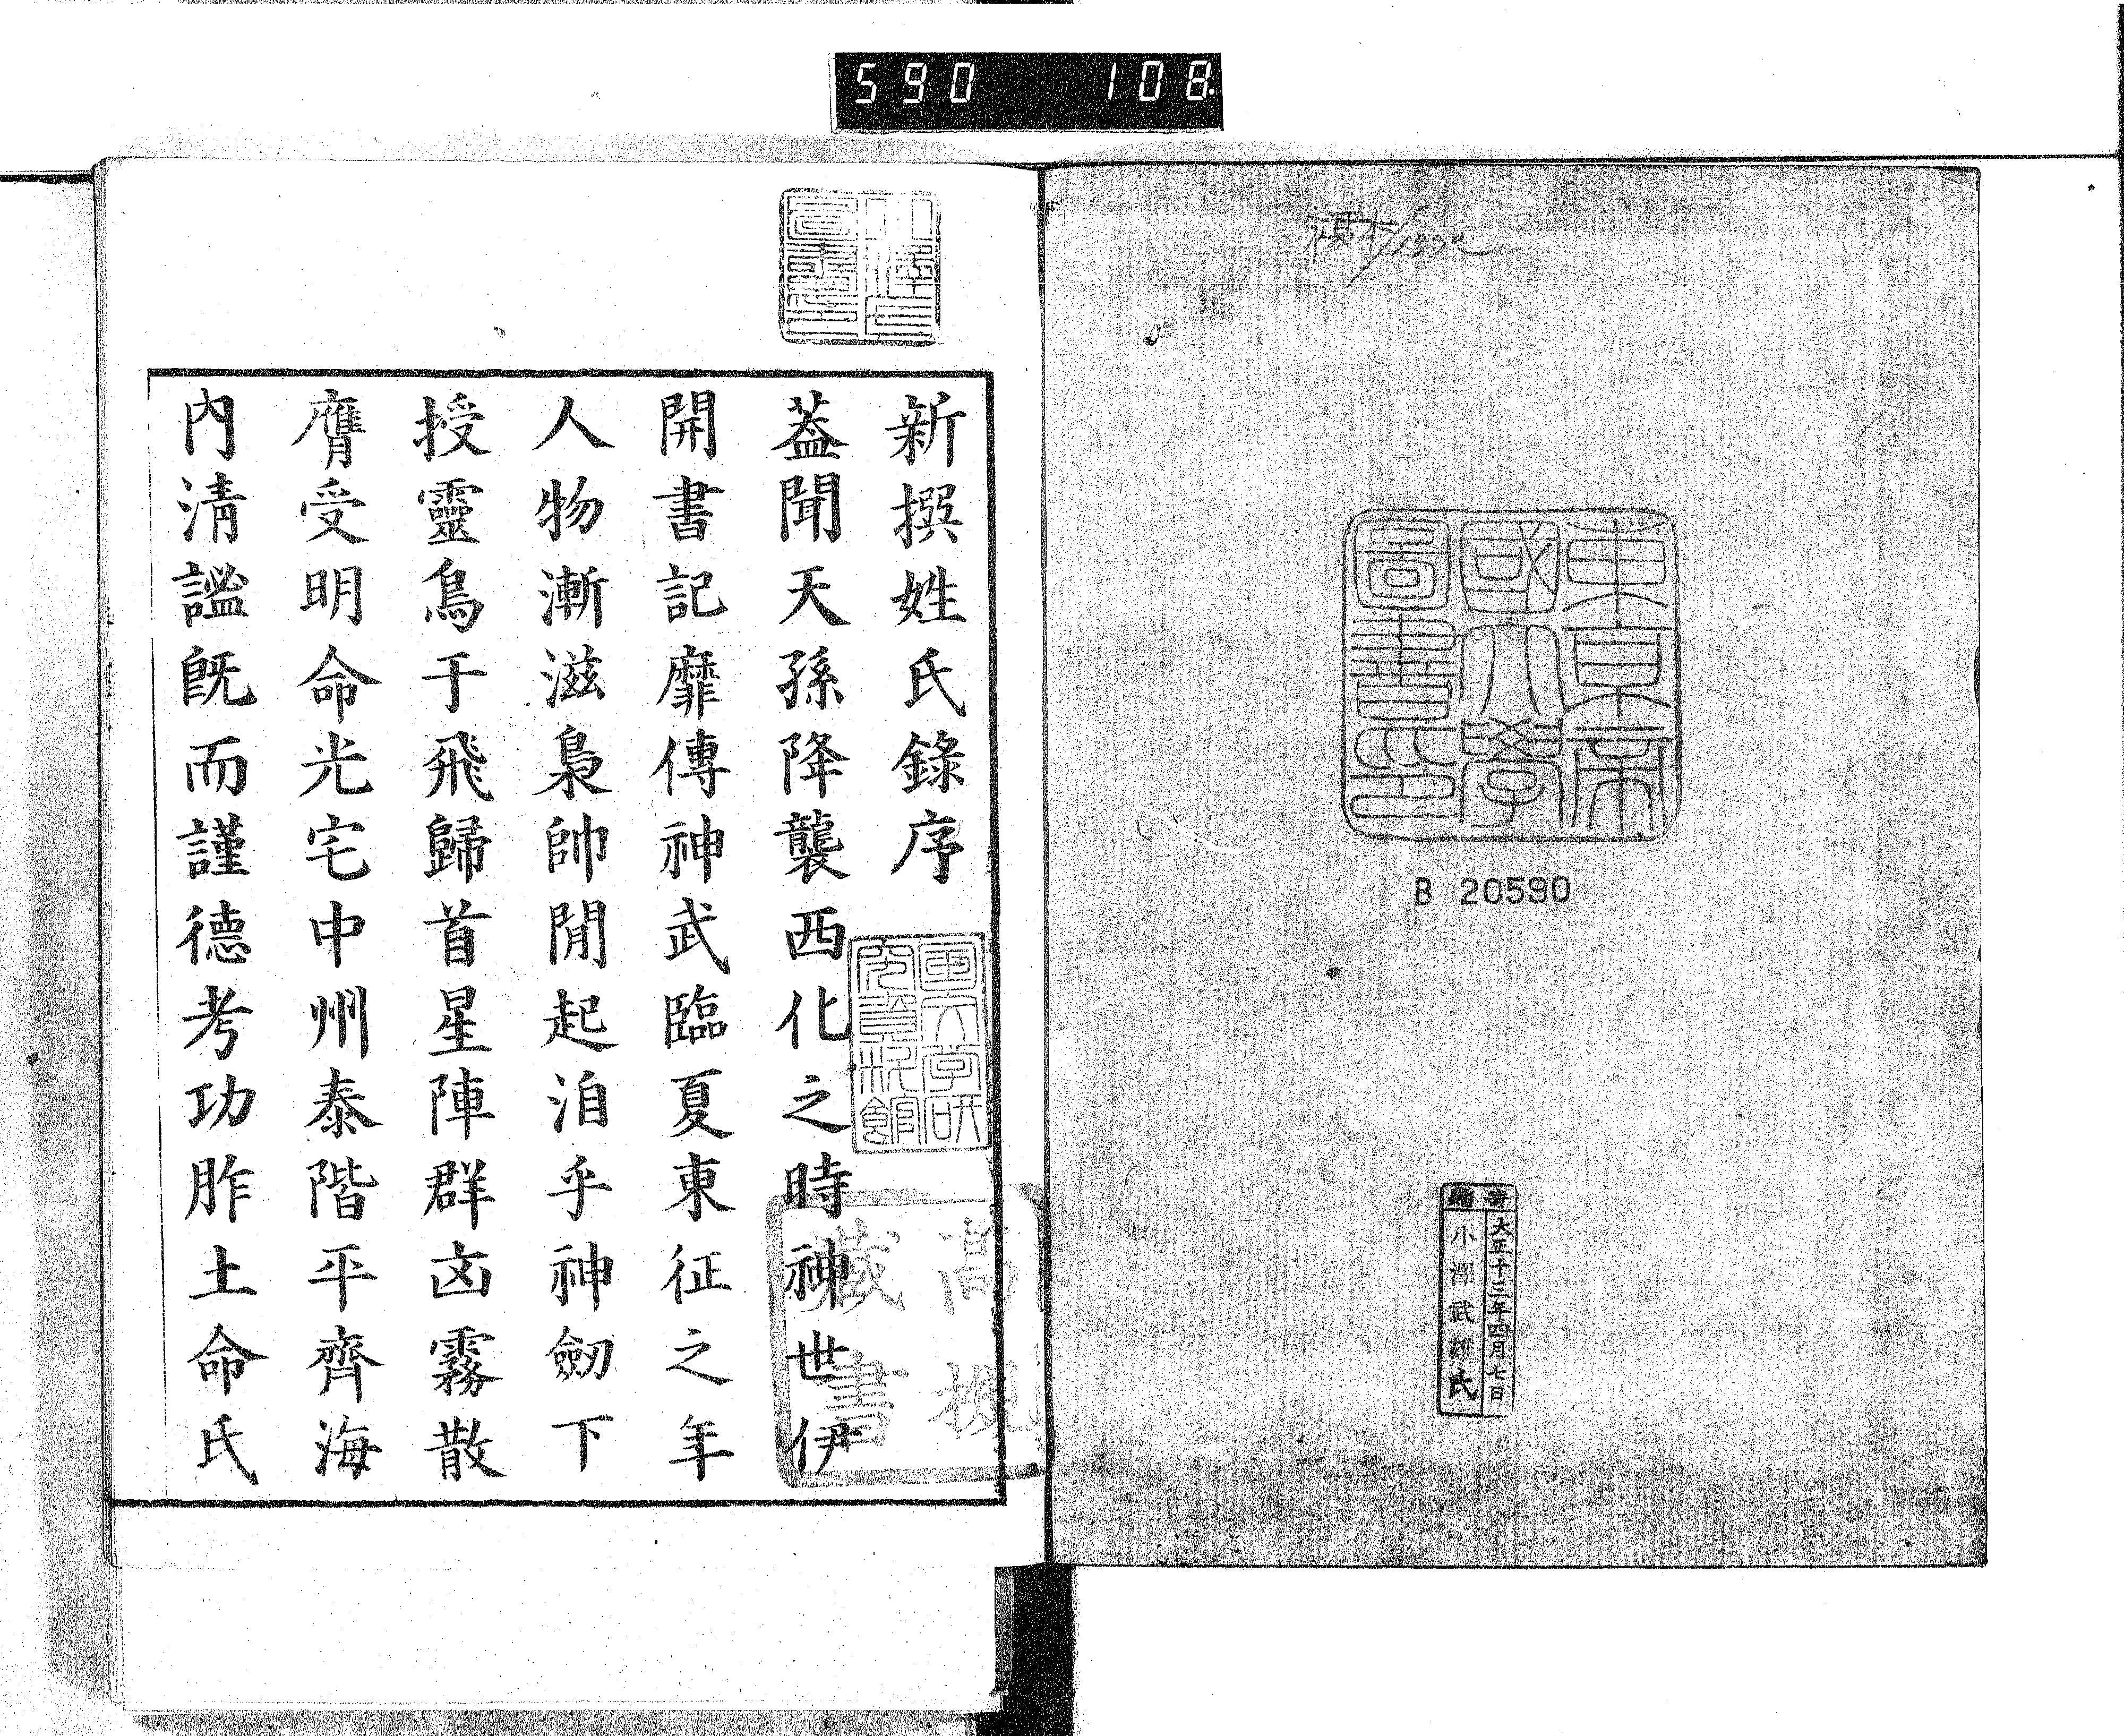 590 108
東京帝
國大學
圖書印
B 20590
大正十三年四月七日
小澤武雄氏
新撰姓氏錄序
蓋聞天孫降襲西化之時神世伊
開書記靡傳神武臨夏東征之年
人物漸滋梟帥閒起洎乎神劒下
授靈鳥于飛歸首星陣群凶霧散
膺受明命光宅中州泰階平齊海
內清謐旣而謹德考功胙土命氏
國文学研
究資料館
藏書